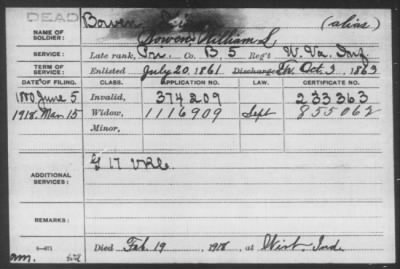 DEAD
Bowen (alias)
NAME OF SOLDIER: Bowen, William L.
SERVICE: Late rank, Co. B, 5 Reg't W. Va. Inf
TERM OF SERVICE: Enlisted July 20, 1861 Discharged Oct. 3, 1863
DATE OF FILING. CLASS. APPLICATION NO. LAW. CERTIFICATE NO.
1880 June 5 Invalid, 374209 233363
1918. Mar. 15 Widow, 1116909 Sept 855062
Minor,
ADDITIONAL SERVICES: G 17 VRC.
REMARKS:
Died Feb. 19, 1918 at Wirt, Ind.